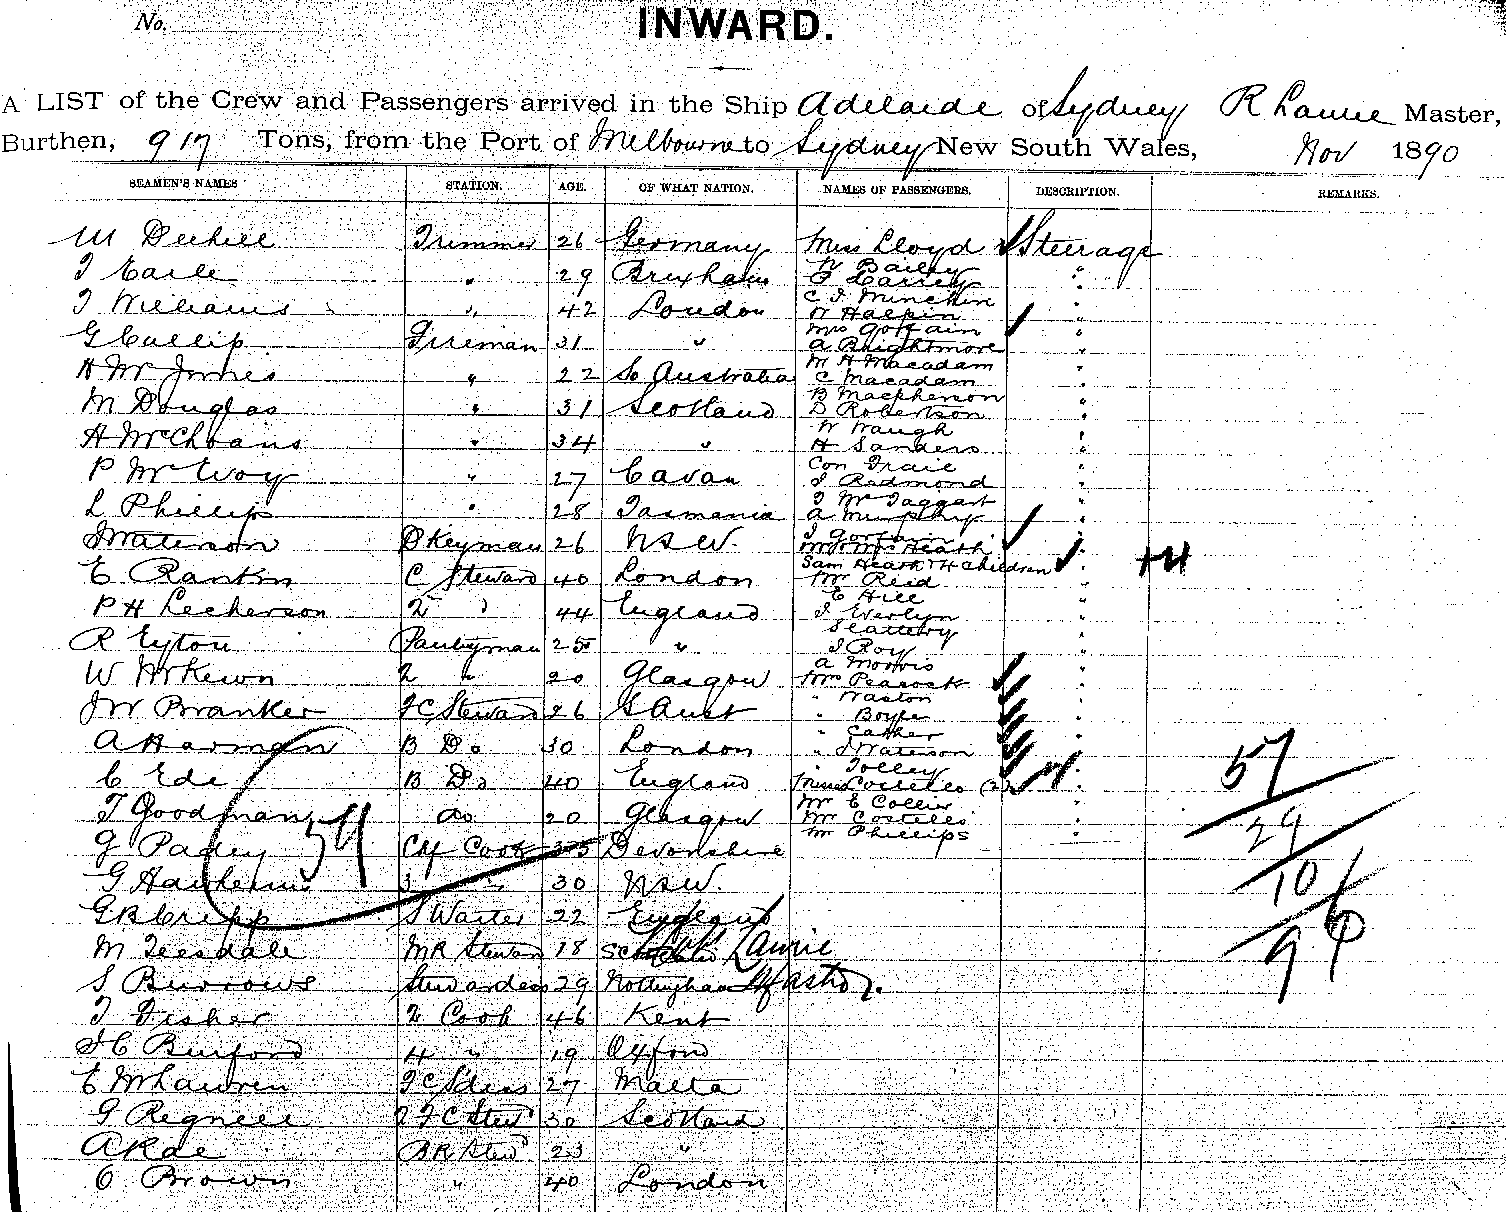 No.
INWARD.
A LIST of the Crew and Passengers arrived in the Ship Adelaide of Sydney R Laurie Master,
Burthen, 917 Tons, from the Port of Melbourne to Sydney New South Wales, Nov 1890
SEAMEN'S NAMES STATION. AGE. OF WHAT NATION. NAMES OF PASSENGERS. DESCRIPTION. REMARKS.
W Trimmer 26 Germany Miss Lloyd Steerage
T Earle " 29 Brixham W Bailey "
T Williams " 42 London C J Minchin "
W Halpin "
G Callip Fireman 31 " Mrs Gorfain "
A Knightmore "
H McInnes " 22 So Australia M H Macadam "
C Macadam "
M Douglas " 31 Scotland B Macpherson "
D Robertson "
W Waugh "
A " 34 " H Sanders "
P McEvoy " 27 Cavan Con Traie "
J Redmond "
L Phillips " 28 Tasmania J McTaggart "
A Murphy "
J Waterson Dkeyman 26 NSW. J Gorfain "
Mr & Mrs Heath "
E Rankin C Steward 40 London Sam Heath & 4 Children +4
Mr Reid "
P H 2 " 44 England E Hill "
J Everlyn "
R Eyton Pantryman 25 " Slattery "
J Roy "
W McKewn 2 " 20 Glasgow A Morris "
Mrs Peacock "
J W Branker F C Steward 26 S Aust " Waston "
" Boyle "
A Harman B Do 30 London "
" J Waterson "
C Ede B Do 40 England " Tolley "
Misses Costello (2) "
T Goodman do 20 Glasgow Mr E Collier "
Mr Costello "
Mr Phillips "
57
G Padey Chf Cook 35 Devonshire
G 3 " 30 NSW.
G B Cripp S Waiter 22 England
M Teesdale M R Steward 18 Laurie
S Burrows Stewardess 29 Nottingham Master.
T Fisher 2 Cook 46 Kent
J C Burford 4 " 19 Oxford
E McLauren F C Stdess 27 Malta
G Regnell 2 F C Stewd 30 Scotland
A Rae B R Stewd 23 "
C Brown " 40 London
57
29
10
96